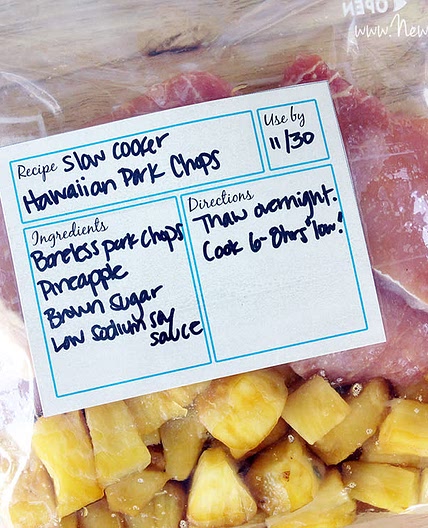 OPEN
www.New
Recipe Slow Cooker
Hawaiian Pork Chops
Use by
11/30
Ingredients
Boneless pork chops
Pineapple
Brown Sugar
Low Sodium Soy
sauce
Directions
Thaw overnight.
Cook 6-8hrs "low!